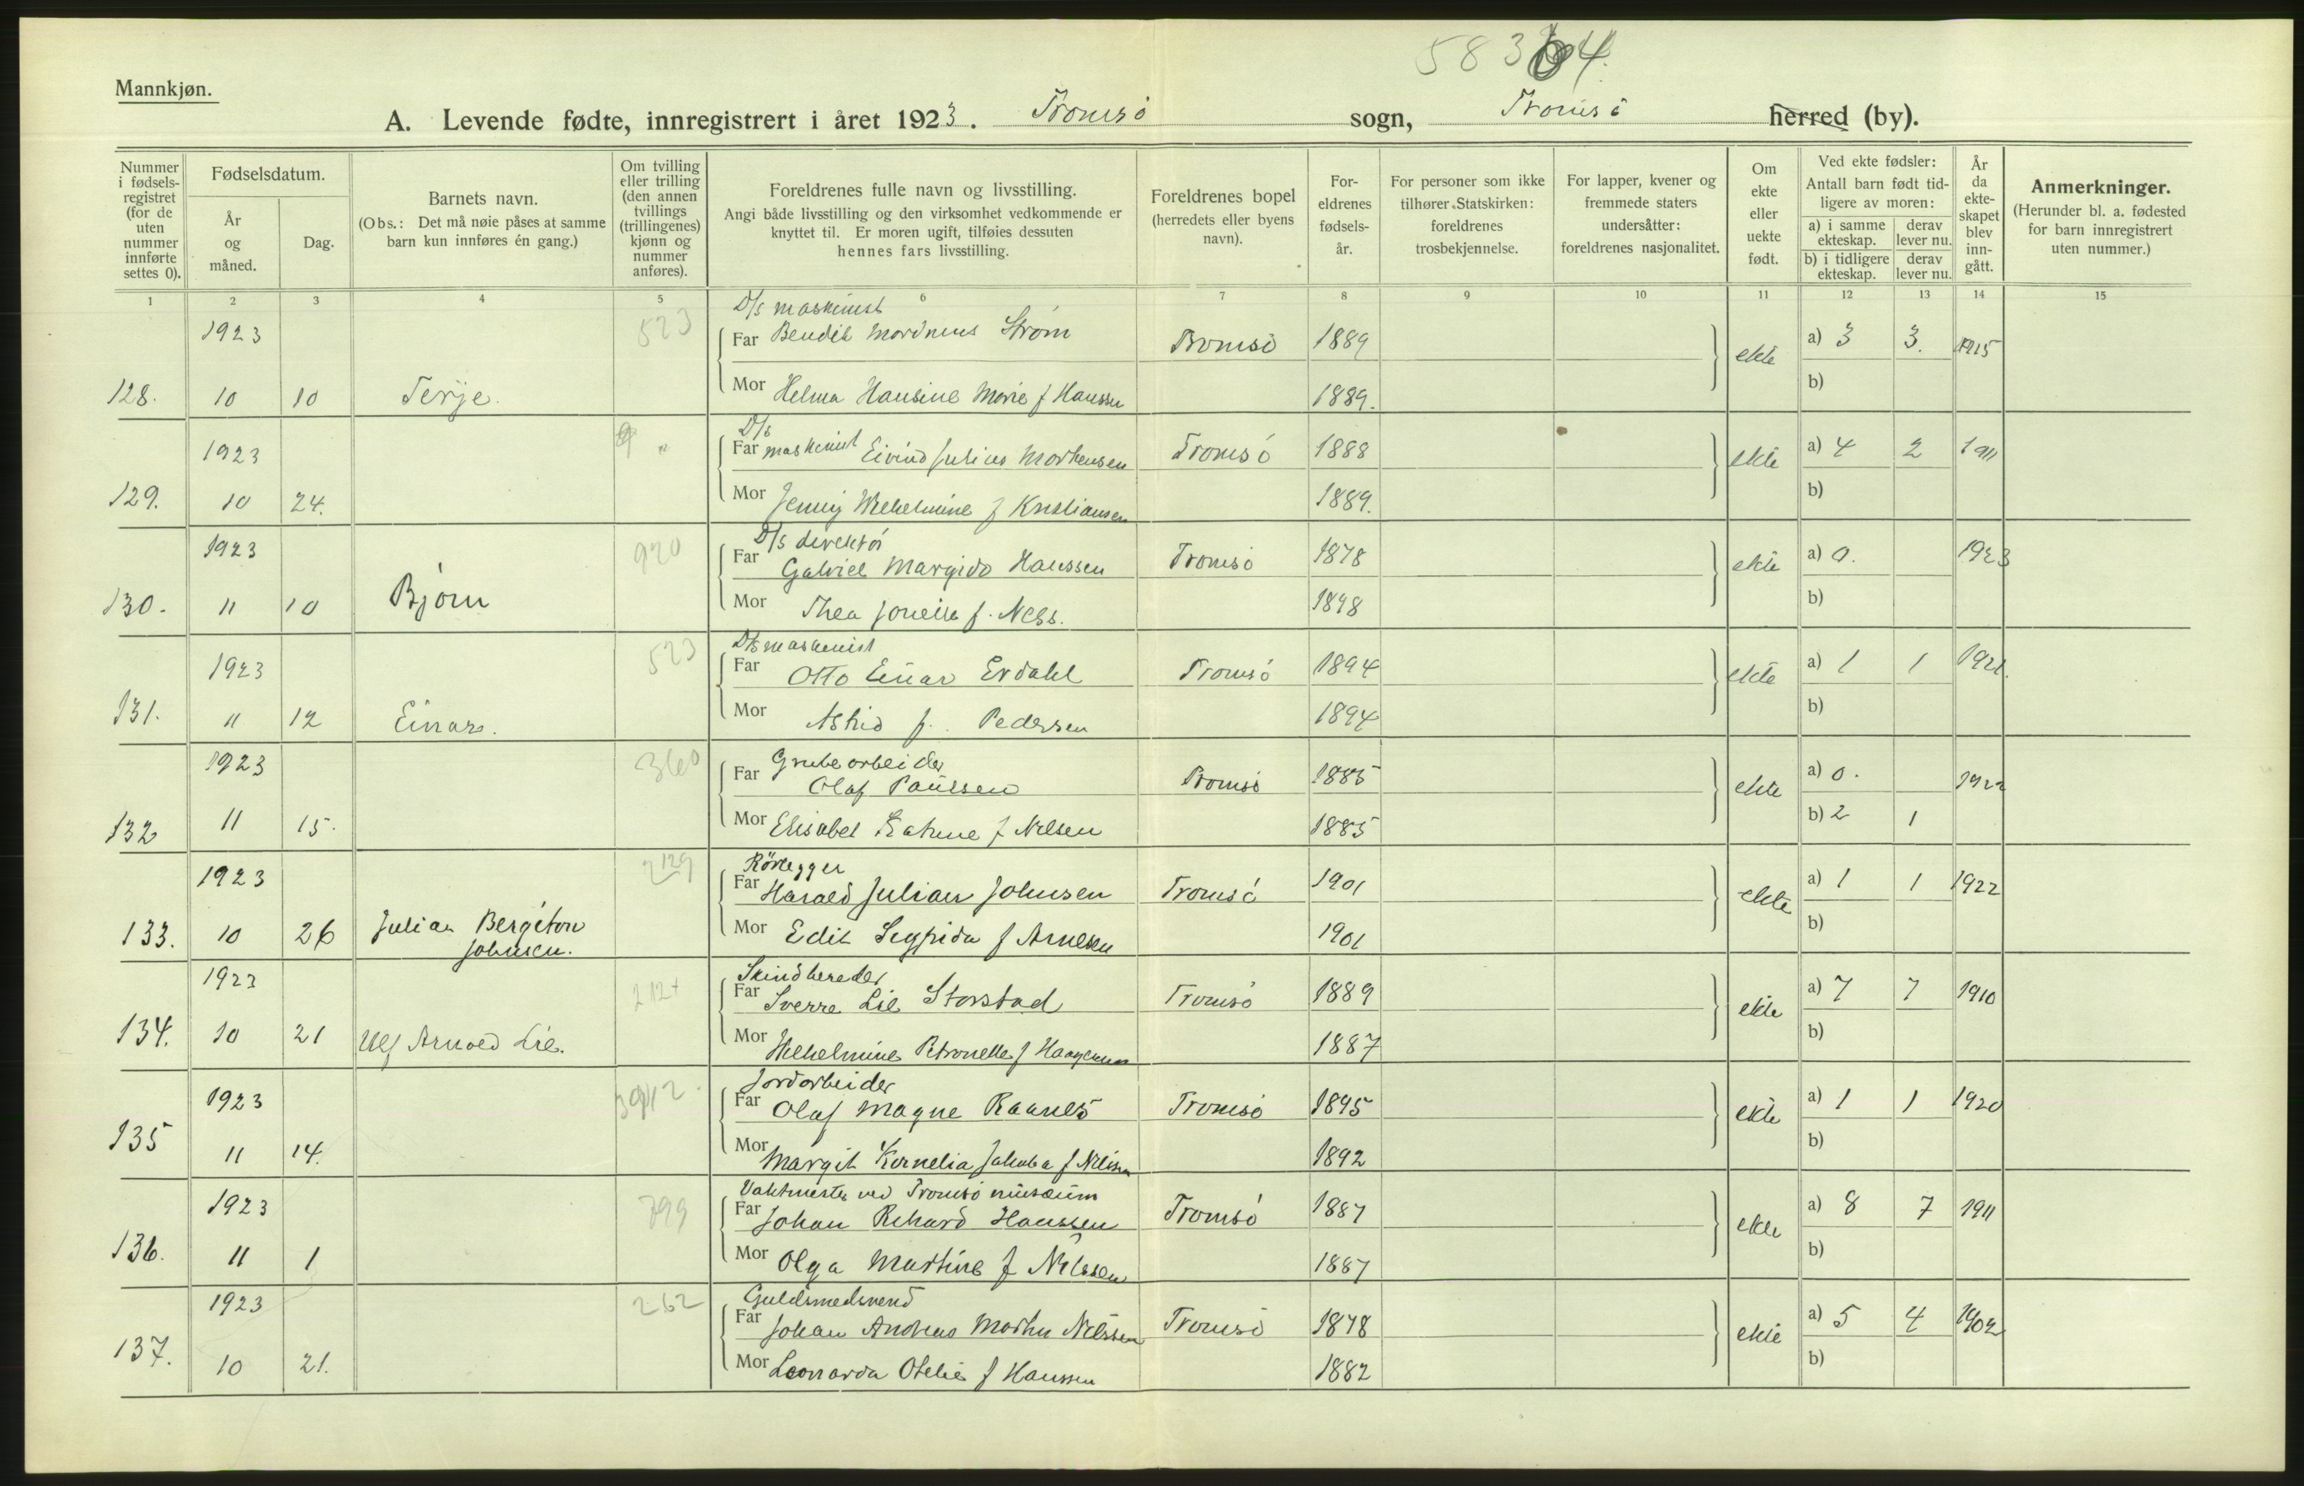 58364.
Mannkjøn.
A. Levende fødte, innregistrert i året 1923. Tromsö sogn, Tromsö herred (by).
Nummer i fødsels- registret (for de uten nummer innførte settes 0).
Fødselsdatum.
År og måned.
Dag.
Barnets navn.
(Obs.: Det må nøie påses at samme barn kun innføres én gang.)
Om tvilling eller trilling (den annen tvillings (trillingenes) kjønn og nummer anføres).
Foreldrenes fulle navn og livsstilling.
Angi både livsstilling og den virksomhet vedkommende er knyttet til. Er moren ugift, tilføies dessuten hennes fars livsstilling.
Foreldrenes bopel (herredets eller byens navn).
For- eldrenes fødsels- år.
For personer som ikke tilhører Statskirken: foreldrenes trosbekjennelse.
For lapper, kvener og fremmede staters undersåtter: foreldrenes nasjonalitet.
Om ekte eller uekte født.
Ved ekte fødsler: Antall barn født tid- ligere av moren:
a) i samme ekteskap. derav lever nu.
b) i tidligere ekteskap. derav lever nu.
År da ekte- skapet blev inn- gått.
Anmerkninger.
(Herunder bl. a. fødested for barn innregistrert uten nummer.)
1 2 3 4 5 6 7 8 9 10 11 12 13 14 15
D/s maskinist
1923 523 Far Bendik Mordneus Strøm Tromsö 1889 ekte a) 3 3. 1915
128. 10 10 Terje. Mor Helma Hansine Marie f Hanssen 1889. b)
D/s
1923 " Far maskinist Eivind Julius Mortensen Tromsö 1888 ekte a) 4 2 1911
129. 10 24. Mor Jenny Wilhelmine f Kristiansen 1889. b)
D/s direktör
1923 920 Far Gabriel Margido Hanssen Tromsö 1878 ekte a) 0. 1923
130. 11 10 Bjørn Mor Thea f. Ness. 1898 b)
D/s maskinist
1923 523 Far Otto Einar Evdahl Tromsö 1894 ekte a) 1 1 1921.
131. 11 12 Einar. Mor Astrid f. Pedersen 1894 b)
Grubearbeider
1923 360 Far Olaf Paulsen Tromsö 1885 ekte a) 0. 1922
132 11 15. Mor Elisabet Katrine f Nilsen 1885 b) 2 1
Rörlegger
1923 2129 Far Harald Julian Johnsen Tromsö 1901 ekte a) 1 1 1922
133. 10 26 Julian Bergiton Johnsen. Mor Edit Sigfrida f Arnesen 1901 b)
Skindbereder
1923 212+ Far Sverre Lie Storstad Tromsö 1889 ekte a) 7 7 1910
134. 10 21 Ulf Arnold Lie. Mor Wilhelmine Petronelle f Haagensen 1887 b)
Jordarbeider
1923 Far Olaf Magne Raanes Tromsö 1895 ekte a) 1 1 1920
135 11 14. Mor Margit Kornelia Jakoba f Nilsen 1892 b)
Vaktmester ved Tromsö museum
1923 799 Far Johan Rikard Hanssen Tromsö 1887 ekte a) 8 7 1911
136. 11 1 Mor Olga Martine f Nilssen 1887 b)
Guldsmedsvend
1923 262 Far Johan Andreas Martin Nilssen Tromsö 1878 ekte a) 5 4 1902
137. 10 21. Mor Leonarda Otelie f Hanssen 1882 b)